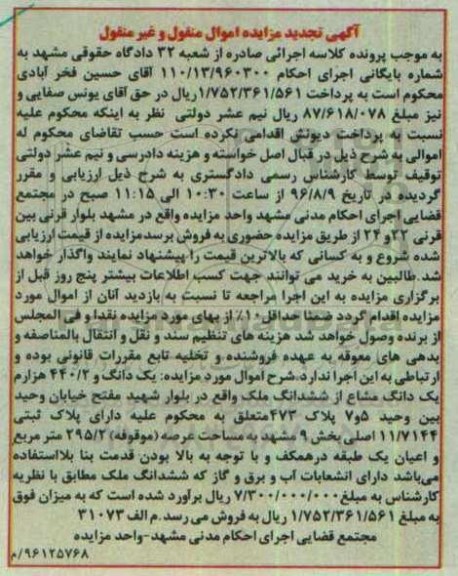 آگهی تجدید مزایده اموال منقول و غیر منقول
به موجب پرونده کلاسه اجرائی صادره از شعبه ۳۲ دادگاه حقوقی مشهد به
شماره بایگانی اجرای احکام ۱۱۰/۱۳/۹۶۰۳۰۰ آقای حسین فخر آبادی
محکوم است به پرداخت ۱/۷۵۲/۳۶۱/۵۶۱ریال در حق آقای یونس صفایی و
نیز مبلغ ۸۷/۶۱۸/۰۷۸ ریال نیم عشر دولتی نظر به اینکه محکوم علیه
نسبت به پرداخت دیونش اقدامی نکرده است حسب تقاضای محکوم له
اموالی به شرح ذیل در قبال اصل خواسته و هزینه دادرسی و نیم عشر دولتی
توقیف توسط کارشناس رسمی دادگستری به شرح ذیل ارزیابی و مقرر
گردیده در تاریخ ۹۶/۸/۹ از ساعت ۱۰:۳۰ الی ۱۱:۱۵ صبح در مجتمع
قضایی اجرای احکام مدنی مشهد واحد مزایده واقع در مشهد بلوار قرنی بین
قرنی ۲۲و ۲۴ از طریق مزایده حضوری به فروش برسدمزایده از قیمت ارزیابی
شده شروع و به کسانی که بالاترین قیمت را پیشنهاد نمایند واگذار خواهد
شد.طالبین به خرید می توانند جهت کسب اطلاعات بیشتر پنج روز قبل از
برگزاری مزایده به این اجرا مراجعه تا نسبت به بازدید آنان از اموال مورد
مزایده اقدام گردد ضمنا حداقل ۱۰٪ از بهای مورد مزایده نقدا و فی المجلس
از برنده وصول خواهد شد هزینه های تنظیم سند و نقل و انتقال بالمناصفه و
بدهی های معوقه به عهده فروشنده و تخلیه تابع مقررات قانونی بوده و
ارتباطی به این اجرا ندارد.شرح اموال مورد مزایده: یک دانگ و ۴۴۰/۲ هزارم
یک دانگ مشاع از ششدانگ ملک واقع در بلوار شهید مفتح خیابان وحید
بین وحید ۵و۷ پلاک ۴۷۳متعلق به محکوم علیه دارای پلاک ثبتی
۱۱/۷۱۴۴ اصلی بخش ۹ مشهد به مساحت عرصه (موقوفه) ۲۹۵/۲ متر مربع
و اعیان یک طبقه درهمکف و با توجه به بالا بودن قدمت بنا بلااستفاده
می‌باشد دارای انشعابات آب و برق و گاز که ششدانگ ملک مطابق با نظریه
کارشناس به مبلغ۷/۳۰۰/۰۰۰/۰۰۰ ریال برآورد شده است که به میزان فوق
به مبلغ ۱/۷۵۲/۳۶۱/۵۶۱ ریال به فروش می رسد.م الف ۳۱۰۷۳
مجتمع قضایی اجرای احکام مدنی مشهد-واحد مزایده
۹۶۱۲۵۷۶۸/م